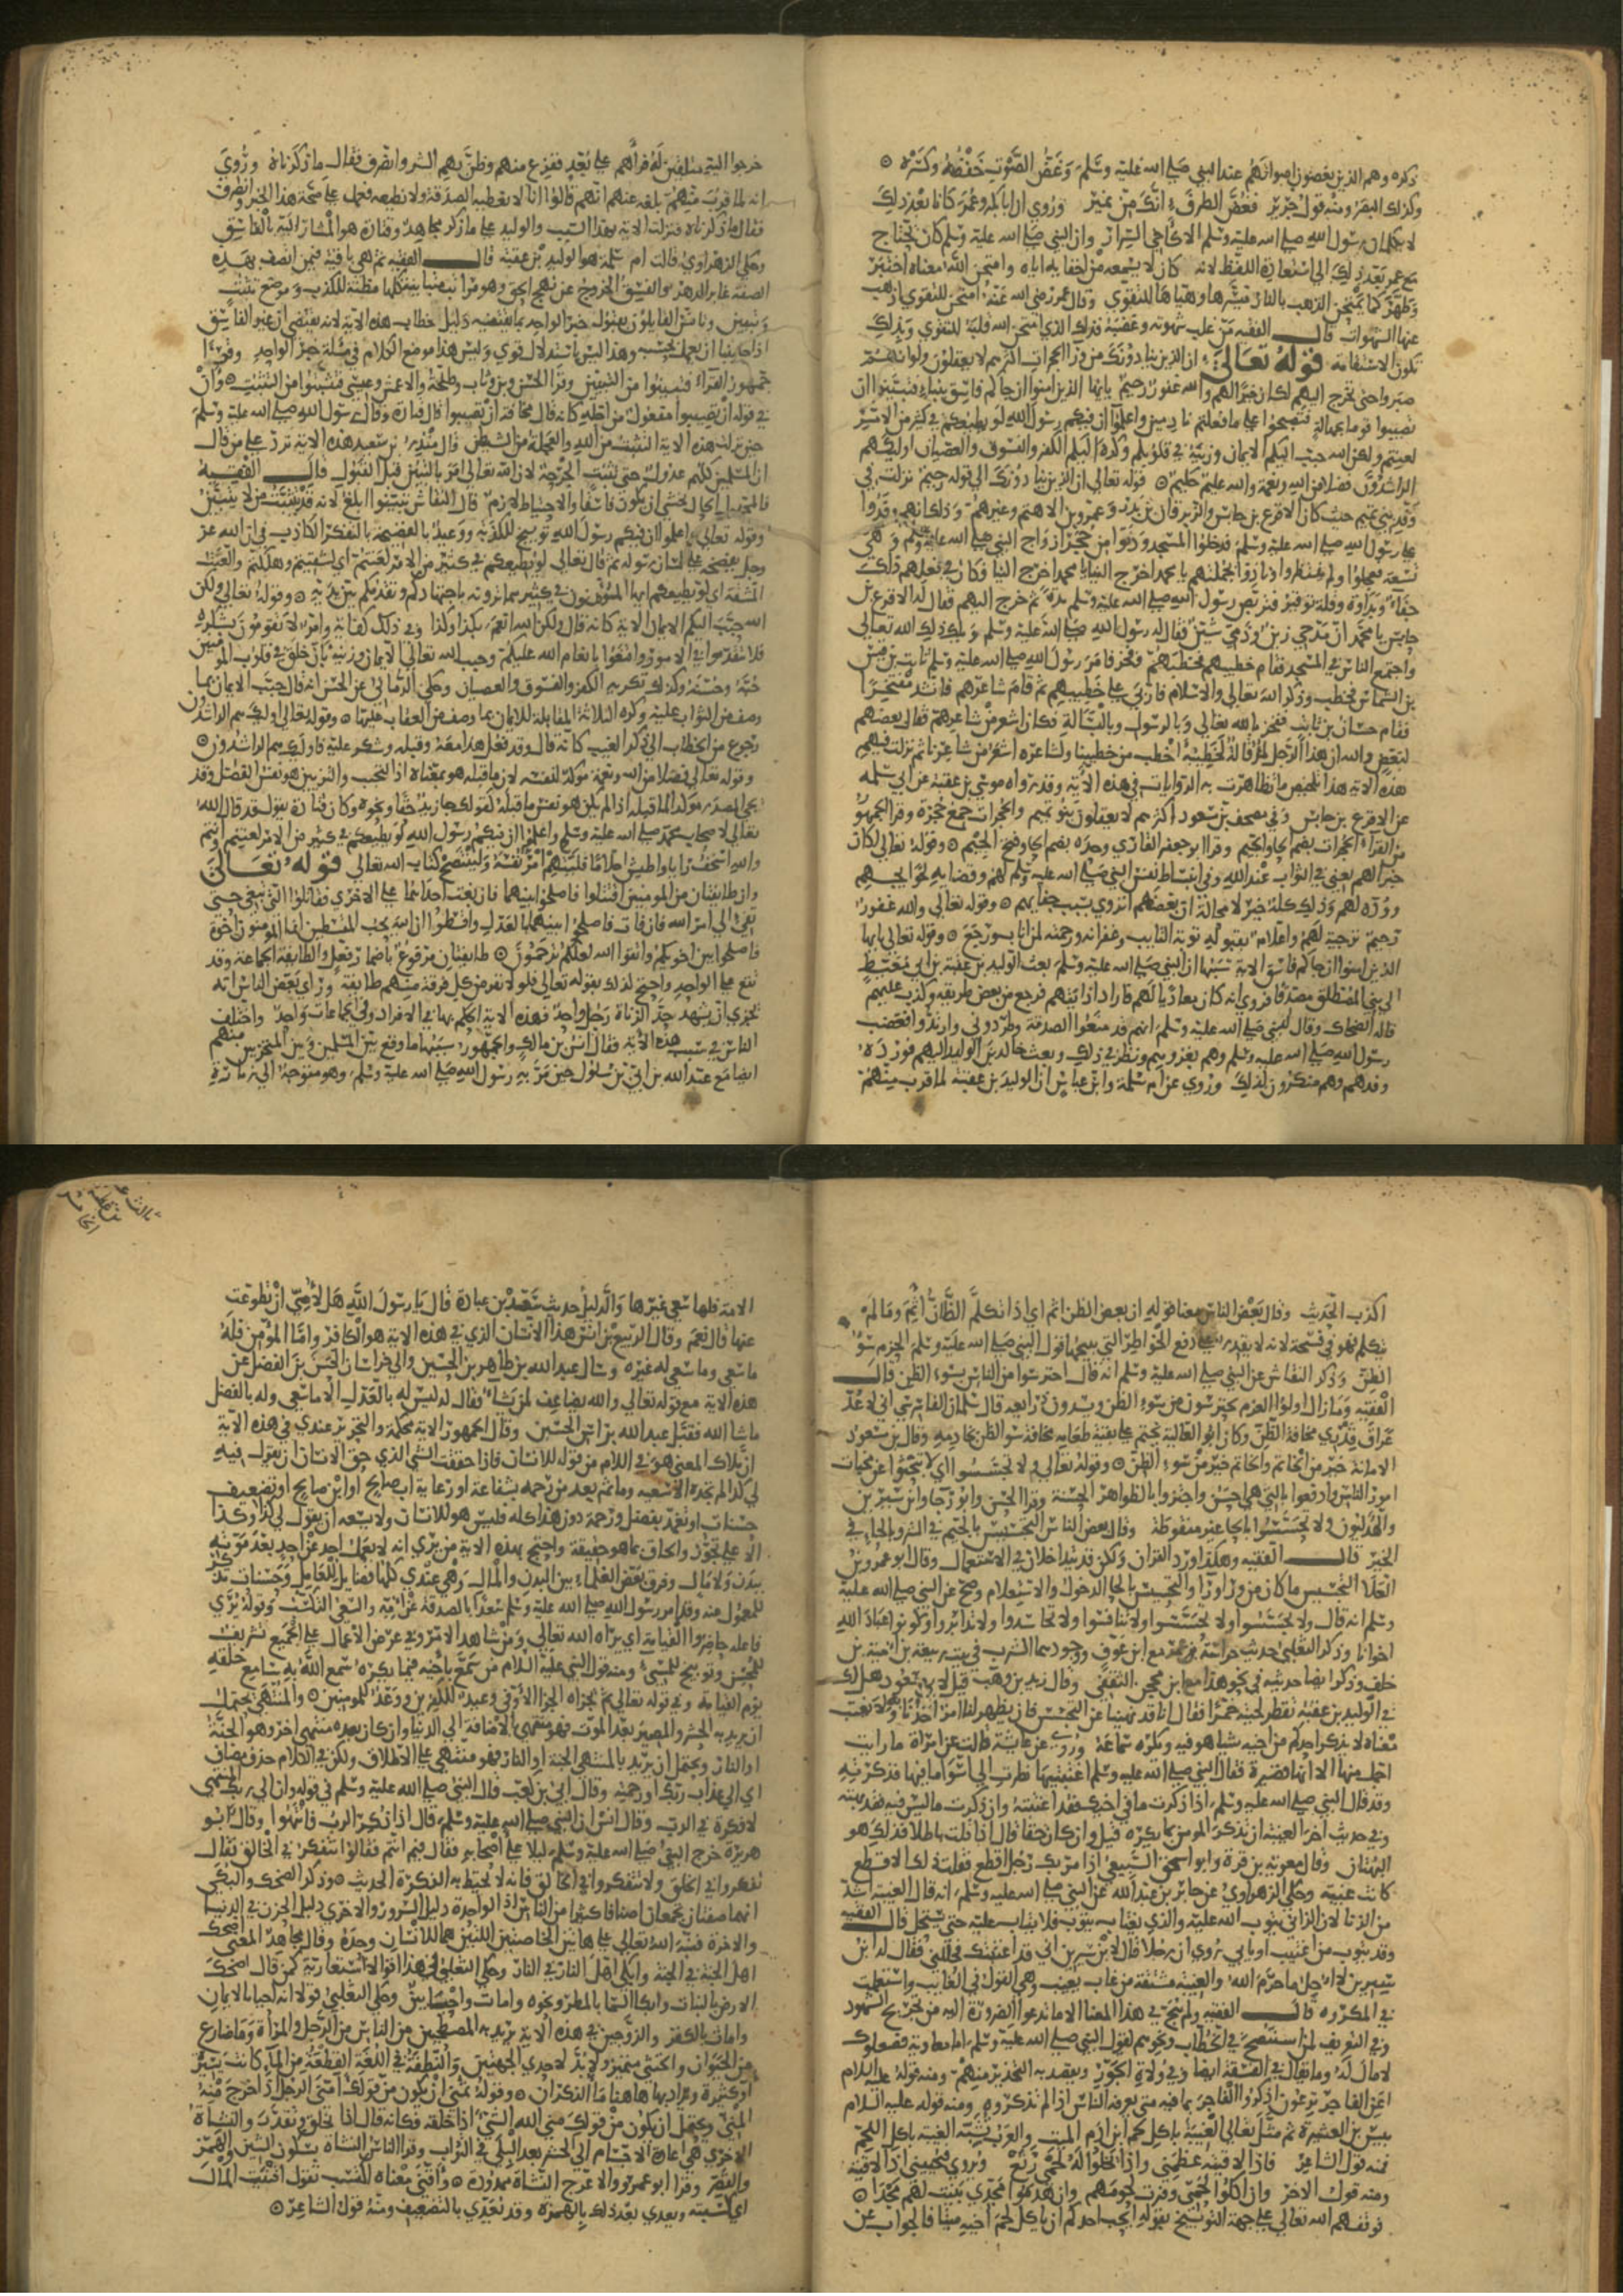 ذكره وهم الذين يغضون اصواتهم عند النبي صلى الله عليه وسلم وغض الصوت خفضه وكسره
وكذلك البصر ومنه قول جرير فغض الطرف انك من نمير وروي ان ابا بكر وعمر كانا بعد ذلك
لا يكلمان رسول الله صلى الله عليه وسلم الا كاخي السرار وان النبي صلى الله عليه وسلم كان يحتاج
مع عمر بعد ذلك الى استعادة اللفظ لانه كان لا يسمعه من اخفايه اياه وامتحن الله معناه اختبر
وطهر كما يمتحن الذهب بالنار فيسرها وهياها للتقوى وقال عمر رضي الله عنه امتحن للتقوى اذهب
عنها الشهوات قال الفقيه من غلب شهوته وغضبه فذلك الذي امتحن الله قلبه للتقوى وبذلك
تكون الاستقامة قوله تعالى ان الذين ينادونك من ورا الحجرات اكثرهم لا يعقلون ولو انهم
صبروا حتى تخرج اليهم لكان خيرا لهم والله غفور رحيم يايها الذين امنوا ان جاكم فاسق بنبا فتبينوا ان
تصيبوا قوما بجهالة فتصبحوا على ما فعلتم نادمين واعلموا ان فيكم رسول الله لو يطيعكم في كثير من الامر
لعنتم ولكن الله حبب اليكم الايمان وزينه في قلوبكم وكره اليكم الكفر والفسوق والعصيان اوليك هم
الراشدون فضلا من الله ونعمة والله عليم حكيم قوله تعالى ان الذين ينادونك الى قوله رحيم نزلت في
وفد بني تميم حيث كان الاقرع بن حابس والزبرقان بن بدر وعمرو بن الاهتم وغيرهم وذلك انهم وفدوا
على رسول الله صلى الله عليه وسلم فدخلوا المسجد ودنوا من حجر ازواج النبي صلى الله عليه وسلم وهي
تسعة فعجلوا ولم ينتظروا فنادوا بجملتهم يا محمد اخرج الينا يا محمد اخرج الينا فكان في فعلهم ذلك
جفاء وبداوة وقلة توقير فتربص رسول الله صلى الله عليه وسلم مدة ثم خرج اليهم فقال له الاقرع بن
حابس يا محمد ان مدحي زين وذمي شين فقال له رسول الله صلى الله عليه وسلم ويلك ذلك الله تعالى
واجتمع الناس في المسجد فقام خطيبهم فخطب وفخر فامر رسول الله صلى الله عليه وسلم ثابت بن قيس
بن الشماس فخطب وذكر الله تعالى والاسلام فاربى على خطيبهم ثم قام شاعرهم فانشد مفتخرا
فقام حسان بن ثابت ففخر بالله تعالى وبالرسول وبالبسالة فكان اشعر من شاعرهم فقال بعضهم
لبعض والله ان هذا الرجل لمؤتى له لخطيبه اخطب من خطيبنا ولشاعره اشعر من شاعرنا ثم نزلت فيهم
هذه الاية هذا تلخيص ما تظاهرت به الروايات في هذه الاية وقد رواه موسى بن عقبة عن ابي سلمة
عن الاقرع بن حابس وفي مصحف بن مسعود اكثرهم لا يعقلون بنو تميم والحجرات جمع حجرة وقرا الجمهور
من القراء الحجرات بضم الحا والجيم وقرا ابو جعفر القاري وحده بضم الحا وفتح الجيم وقوله تعالى لكان
خيرا لهم يعني في الثواب عند الله وفي انبساط نفس النبي صلى الله عليه وسلم لهم وقضايه لحوايجهم
ووده لهم وذلك كله خير لا محالة ان بعضهم انزوى بسبب جفايهم وقوله تعالى والله غفور
رحيم ترجية لهم واعلام بقبوله توبة التايب وغفرانه ورحمته لمن اناب ورجع وقوله تعالى يايها
الذين امنوا ان جاكم فاسق الاية سببها ان النبي صلى الله عليه وسلم بعث الوليد بن عقبة بن ابي معيط
الى بني المصطلق مصدقا فروي انه كان يعاديا لهم فاراد اذايتهم فرجع من بعض طريقه وكذب عليهم
قاله الضحاك وقال للنبي صلى الله عليه وسلم انهم قد منعوا الصدقة وطردوني وارتدوا فغضب
رسول الله صلى الله عليه وسلم وهم بغزوهم ونظر في ذلك وبعث خالد بن الوليد اليهم فورد
وفدهم وهم منكرون لذلك وروي عن ام سلمة وابن عباس ان الوليد بن عقبة لما قرب منهم
خرجوا اليه متلقين له فراهم على بعد ففزع منهم وظن بهم الشر وانصرف فقال ما ذكرناه وروي
انه لما قرب منهم بلغه عنهم انهم قالوا انا لا نعطيه الصدقة ولا نطيعه فعمل على صحة هذا الخبر وانصرف
فقال ما ذكرناه فنزلت الاية بهذا السبب والوليد على ما ذكر مجاهد وقتادة هو المشار اليه بالفاسق
وحكى الزهراوي قالت ام سلمة هو الوليد بن عقبة قال الفقيه ثم هي باقية فيمن اتصف بهذه
الصفة غابر الدهر والفسق الخروج عن نهج الحق وهو مراتب
اذا جا بنبا ان يعمل بحسبه وهذا ليس باستدلال قوي وليس هذا موضع الكلام في مسلة خبر الواحد وقرا
جمهور القراء فتبينوا من التبين وقرا الحسن وبن وثاب وطلحة والاعمش وعيسى فتثبتوا من التثبت وان
في قوله ان تصيبوا مفعول من اجله كانه قال مخافة ان تصيبوا قال قتادة وقال رسول الله صلى الله عليه وسلم
حين نزلت هذه الاية التثبت من الله والعجلة من الشيطان قال منذر بن سعيد هذه الاية ترد على من قال
ان المسلمين كلهم عدول حتى تثبت الجرحة لان الله تعالى امر بالتبين قبل القبول قال الفقيه
فالمجهول الحال يخشى ان يكون فاسقا والاحتياط لازم قال النقاش تبينوا ابلغ لانه قد يتثبت من لا يتبين
وقوله تعالى واعلموا ان فيكم رسول الله توبيخ للكذبة ووعيد بالفضيحة
المشقة اي لو يطيعكم ايها المؤمنون في كثير مما ترونه باجتهادكم وتقدمكم بين يديه وقوله تعالى ولكن
الله حبب اليكم الايمان الاية كانه قال ولكن الله انعم بكذا وكذا وفي ذلك كفاية وامر لا تقومون بشكره
فلا تتقدموا في الامور وامتنعوا بانعام الله عليكم وحبب الله تعالى الايمان وزينه بان خلق في قلوب المومنين
حبه وحسنه وكذلك تكريه الكفر والفسوق والعصيان وحكى الرماني عن الحسن انه قال حبب الايمان بما
وصف من الثواب عليه وكره الثلاثة المقابلة للايمان بما وصف من العقاب عليها وقوله تعالى اوليك هم الراشدون
رجوع من الخطاب الى ذكر الغيب كانه قال ومن فعل هذا معه وقبله وشكر عليه فاوليك هم الراشدون
وقوله تعالى فضلا من الله ونعمة مصدر موكد لنفسه لان ما قبله هو بمعناه اذ التحبب والتزيين هو نفس الفضل وقد
يجي المصدر موكدا لما قبله اذا لم يكن هو نفس ما قبله كقولك جاني زيد حقا ونحوه وكان قتادة يقول قد قال الله
تعالى لاصحاب محمد صلى الله عليه وسلم واعلموا ان فيكم رسول الله لو يطيعكم في كثير من الامر لعنتم وانتم
والله اسخف رايا واطيش احلاما فليتهم امرؤ نفسه ولينتصح كتاب الله تعالى قوله تعالى
وان طايفتان من المومنين اقتتلوا فاصلحوا بينهما فان بغت احداهما على الاخرى فقاتلوا التي تبغي حتى
تفي الى امر الله فان فات فاصلحوا بينهما بالعدل واقسطوا ان الله يحب المقسطين انما المومنون اخوة
فاصلحوا بين اخويكم واتقوا الله لعلكم ترحمون طايفتان مرفوع باضمار فعل والطايفة الجماعة وقد
تقع على الواحد واحتج لذلك بقوله تعالى فلولا نفر من كل فرقة منهم طايفة وراى بعض الناس انه
يجزي ان يشهد حد الزناة رجل واحد فهذه الاية الحكم بها في الافراد وفي الجماعات واحد واختلف
الناس في سبب هذه الاية فقال انس بن مالك والجمهور سببها ما وقع بين المسلمين وبين المتحزبين منهم
ايضا مع عبد الله بن ابي بن سلول حين مر به رسول الله صلى الله عليه وسلم وهو متوجه الى زيارة
اكذب الحديث وقال بعض الناس معنا قوله ان بعض الظن اثم اي اذا تكلم الظان اثم وما لم
يتكلم فهو في فسحة لانه لا يقدر على دفع الخواطر التي يبيحها قول النبي صلى الله عليه وسلم الحزم سوء
الظن وذكر النقاش عن النبي صلى الله عليه وسلم انه قال احترسوا من الناس بسوء الظن قال
الفقيه وما زال اولوا العزم يحترسون من سوء الظن ويسدون ذرايعه قال سلمان الفارسي اني لاعد
عراق قدري مخافة الظن وكان ابو العالية يختم على بقية طعامه مخافة سو الظن بخادمه وقال بن مسعود
الامانة خير من الخاتم والخاتم خير من سوء الظن وقوله تعالى ولا تجسسوا اي لا تبحثوا عن مخبات
امور الناس وادفعوا بالتي هي احسن واجتزوا بالظواهر الحسنة وقرا الحسن وابو رجا وابن سيرين
والهذليون ولا تحسسوا بالحا غير منقوطة وقال بعض الناس التجسس بالجيم في الشر وبالحا في
الخير قال الفقيه وهكذا ورد القران ولكن قد يتداخلان في الاستعمال وقال ابو عمرو بن
العلا التجسس ما كان من ورا ورا والتحسس بالحا الدخول والاستعلام وصح عن النبي صلى الله عليه
وسلم انه قال ولا تجسسوا ولا تحسسوا ولا تنافسوا ولا تحاسدوا ولا تدابروا وكونوا عباد الله
اخوانا وذكر الثعلبي حديث حراسة عمر مع ابن عوف ووجودهما الشرب في بيت ربيعة بن امية بن
خلف وذكر ايضا حديثه في نحو هذا مع ابي محجن الثقفي وقال زيد بن وهب قيل لابن مسعود هل لك
في الوليد بن عقبة تقطر لحيته خمرا فقال انا قد نهينا عن التجسس فان يظهر لنا امر اخذنا به ولا يغتب
معناه لا يذكر احدكم من اخيه شيا هو فيه ويكره سماعه وروي عن عايشة قالت عن امراة ما رايت
اجمل منها الا انها قصيرة فقال النبي صلى الله عليه وسلم اغتبتيها نظرت الى اسوا ما فيها فذكرتيه
وقد قال النبي صلى الله عليه وسلم اذا ذكرت ما في اخيك فقد اغتبته واذا ذكرت ما ليس فيه فقد بهته
وفي حديث اخر الغيبة ان تذكر المومن بما يكره قيل وان كان حقا قال اذا قلت باطلا فذلك هو
البهتان وقال معوية بن قرة وابو اسحق السبيعي اذا مر بك رجل اقطع فقلت ذلك الاقطع
كانت غيبة وحكى الزهراوي عن جابر بن عبد الله عن النبي صلى الله عليه وسلم انه قال الغيبة اشد
من الزنا لان الزاني يتوب الله عليه والذي يغتاب يتوب فلا يتاب عليه حتى يستحل قال الفقيه
وقد يتوب من اغتيب او يابى وروي ان رجلا قال لابن سيرين اني قد اغتبتك فحللني فقال له ابن
سيرين لا احل ما حرم الله والغيبة مشتقة من غاب يغيب وهي القول في الغايب واستعملت
في المكروه قال الفقيه ولم يبح في هذا المعنا الا ما تدعوا الضرورة اليه من تجريح الشهود
وفي التعريف لمن استنصح في الخطاب ونحوهم لقول النبي صلى الله عليه وسلم اما معاوية فصعلوك
لا مال له وما يقال في الفسقة ايضا وفي ولاة الجور ويقصد به التحذير منهم ومنه قوله عليه السلام
اعن الفاجر ترعون اذكروا الفاجر بما فيه متى يعرفه الناس اذا لم تذكروه ومنه قوله عليه السلام
بيس بن العشيرة ثم مثل تعالى الغيبة باكل لحم ابن ادم الميت والعرب تشبه الغيبة باكل اللحم
فمنه قول الشاعر فاذا لاقيته عظمني واذا يخلوا له لحمي رتع ويروى فيحييني اذا لاقيته
ومنه قول الاخر وان اكلوا لحمي وفرت لحومهم وان هدموا مجدي بنيت لهم مجدا
فوقفهم الله تعالى على جهة التوبيخ بقوله ايحب احدكم ان ياكل لحم اخيه ميتا فالجواب عن
الامة فلها سعي غيرها والدليل حديث سعد بن عبادة قال يا رسول الله هل لامي ان تطوعت
عنها قال نعم وقال الربيع بن انس هذا الانسان الذي في هذه الاية هو الكافر واما المؤمن فله
ما سعى وما سعى له غيره وسال عبد الله بن طاهر بن الحسين والي خراسان الحسين بن الفضل عن
هذه الاية مع قوله تعالى والله يضاعف لمن يشاء فقال له ليس له بالعدل الا ما سعى وله بالفضل
ما شا الله فقبل عبد الله راس الحسين وقال الجمهور الاية محكمة والتحرير عندي في هذه الاية
ان ملاك المعنى هو في اللام من قوله للانسان فاذا حققت الشي الذي حق الانسان ان يقول فيه
لي كذا لم تجده الا سعيه وما تم بعد من رحمة بشفاعة او رعاية اب صالح او ابن صالح او تضعيف
حسنات او تغمد بفضل ورحمة دون هذا كله فليس هو للانسان ولا يسعه ان يقول لي كذا وكذا
الا على تجوز والحاق بما هو حقيقة واحتج بهذه الاية من يرى انه لا يعمل احد عن احد بعد موته
ببدن ولا مال وفرق بعض العلماء بين البدن والمال وهي عندي كلها فضايل للعامل وحسنات تذكر
للمعمول عنه وقد امر رسول الله صلى الله عليه وسلم سعدا بالصدقة عن امه والسعي التكسب وقوله يرى
فاعله حاضروا القيامة اي يراه الله تعالى ومن شاهد الامر وفي عرض الاعمال على الجميع تشريف
للمحسن وتوبيخ للمسيء ومنه قول النبي عليه السلام من سمع باخيه فيما يكره سمع الله به سامع خلقه
يوم القيامة وفي قوله تعالى ثم يجزاه الجزا الاوفى وعيد للكافرين ووعد للمومنين والمنتهى يحتمل
ان يريد به الحشر والمصير بعد الموت فهو منتهى بالاضافة الى الدنيا وان كان بعده منتهى اخر وهو الجنة
او النار ويحتمل ان يريد بالمنتهى الجنة او النار فهو منتهى على الاطلاق ولكن في الكلام حذف مضاف
اي الى عذاب ربك او رحمته وقال ابي بن كعب قال النبي صلى الله عليه وسلم في قوله وان الى ربك المنتهى
لا فكرة في الرب وقال انس ان النبي صلى الله عليه وسلم قال اذا ذكر الرب فانتهوا وقال ابو
هريرة خرج النبي صلى الله عليه وسلم ليلا على اصحابه فقال فيم انتم فقالوا نتفكر في الخالق فقال
تفكروا في الخلق ولا تتفكروا في الخالق فانه لا تحيط به الفكرة الحديث وذكر الضحك والبكى
انهما صفتان تجمعان اصنافا كثيرا من الناس اذ الواحدة دليل السرور والاخرى دليل الحزن في الدنيا
والاخرة فنبه الله تعالى على هاتين الخاصتين اللتين هما للانسان وحده وقال مجاهد المعنى اضحك
اهل الجنة في الجنة وابكى اهل النار في النار وحكى الثعلبي في هذا اقوالا استعارية كمن قال اضحك
الارض بالنبات وابكى السما بالمطر ونحوه وامات واحيا بين وحكى الثعلبي قولا انه احيا بالايمان
وامات بالكفر والزوجين في هذه الاية يريد به المصطحبين من الناس من الرجل والمراة وما ضارع
من الحيوان والخنثى متميز ولا بد لاحدى الجهتين والنطفة في اللغة القطعة من الما كانت يسيرة
او كثيرة ويراد بها هاهنا ما الذكران وقوله تمنى ان يكون من قولك امنى الرجل اذا خرج منه
المني ويحتمل ان يكون من قولك منى الله الشيء اذا خلقه فكانه قال اذا تخلق وتقدر والنشاة
الاخرى هي اعادة الاجسام الى الحشر بعد البلى في التراب وقرا الناس النشاة بسكون الشين والهمز
والقصر وقرا ابو عمرو والاعرج النشاة ممدودة واقنى معناه اكسب تقول اقنيت المال
اي كسبته وتعدي بعد ذلك بالهمزة وقد تعدي بالتضعيف ومنه قول الشاعر